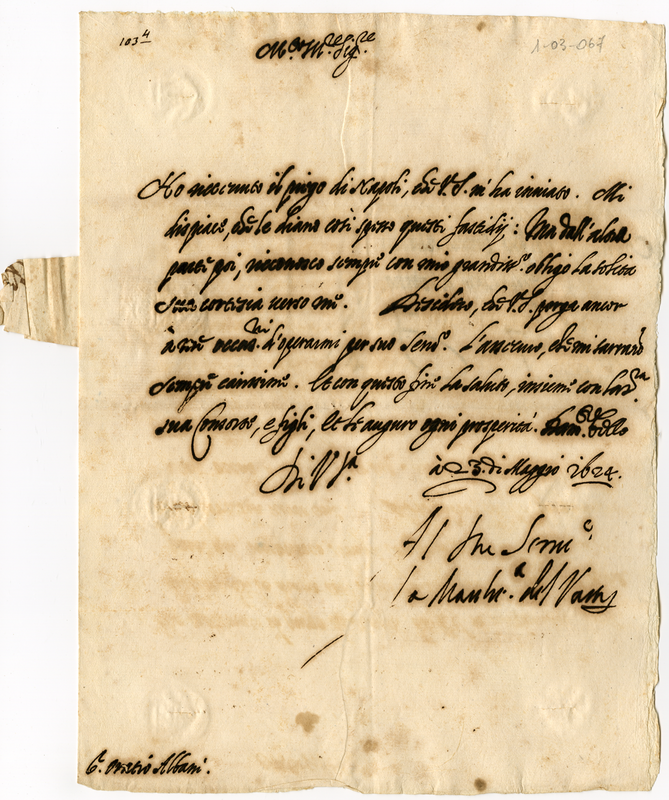 103 4
1-03-067
M.to Ill.re Sig.re
Ho riceuuto il piego di Napoli, che V.S. m'ha inuiato. Mi
dispiace, che le diano così spesso questi fastidij: Ma dall'altra
parte poi, riconosco sempre con mio grandiss.o obligo la solita
sua cortesia verso me. Desidero, che V.S. porga ancor
à me occas.ni d'operarmi per suo seru.o L'assicuro, che mi saranno
sempre carissime. Et con questo fine La saluto, insieme con la
sua Consorte, e figli, et le auguro ogni prosperità.
Di V.S.ra à 23 di Maggio 1624.
Al Seru
la March.a del Vasto
S. Oratio Albani.